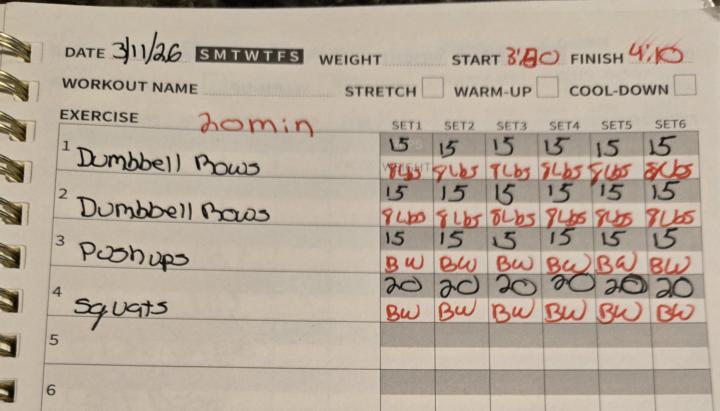 DATE 3/11/26 SMTWTFS WEIGHT START FINISH 4:10
WORKOUT NAME STRETCH WARM-UP COOL-DOWN
EXERCISE 20min SET1 SET2 SET3 SET4 SET5 SET6
1 Dumbbell Rows 15 15 15 15 15 15
8Lbs 8Lbs 8Lbs 8Lbs 8Lbs 8Lbs
2 Dumbbell Rows 15 15 15 15 15 15
8Lbs 8Lbs 8Lbs 8Lbs 8Lbs 8Lbs
3 Pushups 15 15 15 15 15 15
BW BW BW BW BW BW
4 Squats 20 20 20 20 20 20
BW BW BW BW BW BW
5
6